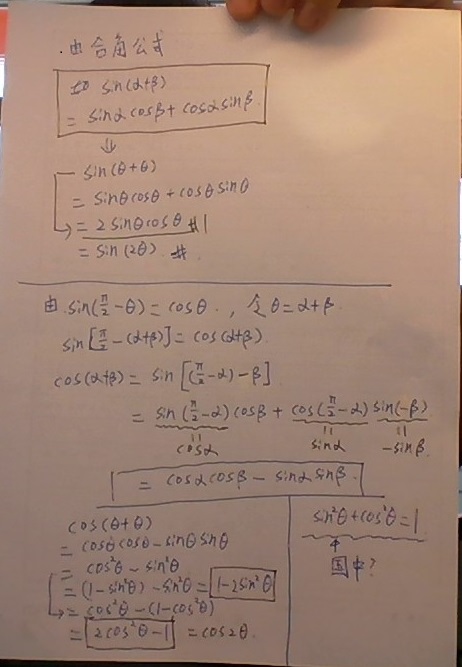 .由合角公式
如 sin(α+β)
= sinα cosβ + cosα sinβ.
⇓
sin(θ+θ)
= sinθ cosθ + cosθ sinθ
= 2 sinθ cosθ #1
= sin(2θ). #
由 sin(π/2 - θ) = cosθ., 令 θ = α+β.
sin[π/2 - (α+β)] = cos(α+β).
cos(α+β) = sin[(π/2 - α) - β]
= sin(π/2 - α) cosβ + cos(π/2 - α) sin(-β)
cosα sinα -sinβ.
= cosα cosβ - sinα sinβ.
cos(θ+θ)
= cosθ cosθ - sinθ sinθ
= cos²θ - sin²θ
= (1 - sin²θ) - sin²θ = 1 - 2sin²θ
= cos²θ - (1 - cos²θ)
= 2cos²θ - 1 = cos2θ.
sin²θ + cos²θ = 1
↑
国中?